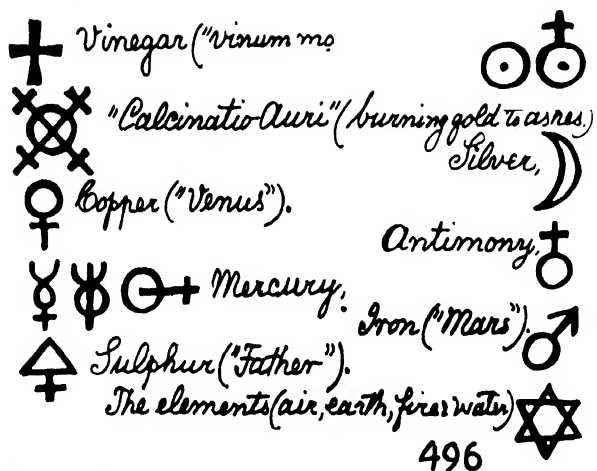 Vinegar ("vinum mo
"Calcinatio Auri" (burning gold to ashes.)
Silver,
Copper ("Venus").
Antimony,
Mercury,
Iron ("Mars").
Sulphur ("Father").
The elements (air, earth, fire & water)
496